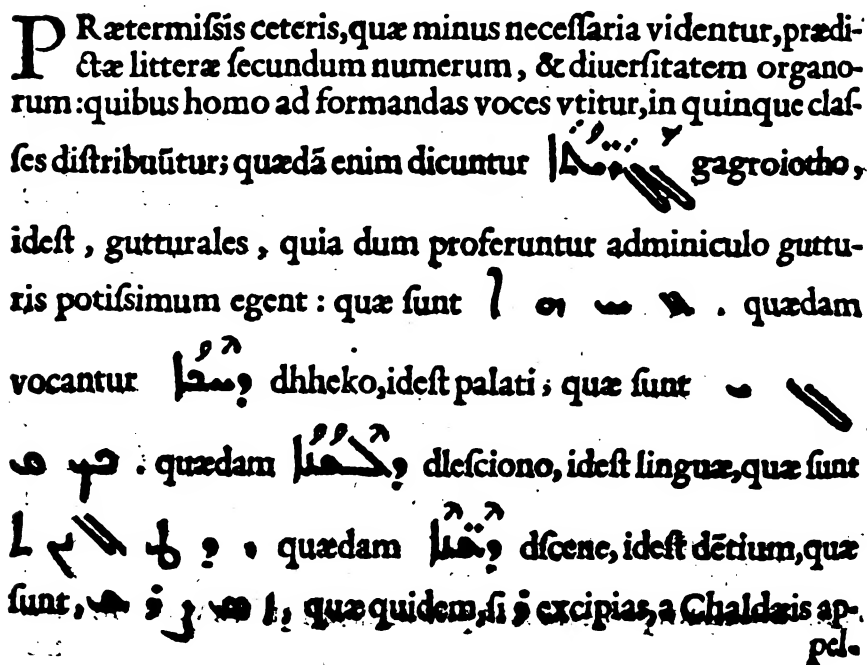 PRætermiſsis ceteris,quæ minus neceſſaria videntur,prædi-
ctæ litteræ ſecundum numerum, & diuerſitatem organo-
rum:quibus homo ad formandas voces vtitur,in quinque claſ-
ſes diſtribuũtur; quædã enim dicuntur gagroiotho,
ideſt, gutturales, quia dum proferuntur adminiculo guttu-
ris potiſsimum egent: quæ ſunt ܐ ܗ ܚ ܥ . quædam
vocantur ܕܚܟܐ dhheko,ideſt palati; quæ ſunt
. quædam ܕܠܫܢܐ dleſciono, ideſt linguæ,quæ ſunt
quædam ܕܫܢ̈ܐ dſcene, ideſt dẽtium,quæ
ſunt, quæ quidem,ſi ܪ excipias,a Chaldæis ap-
pel-